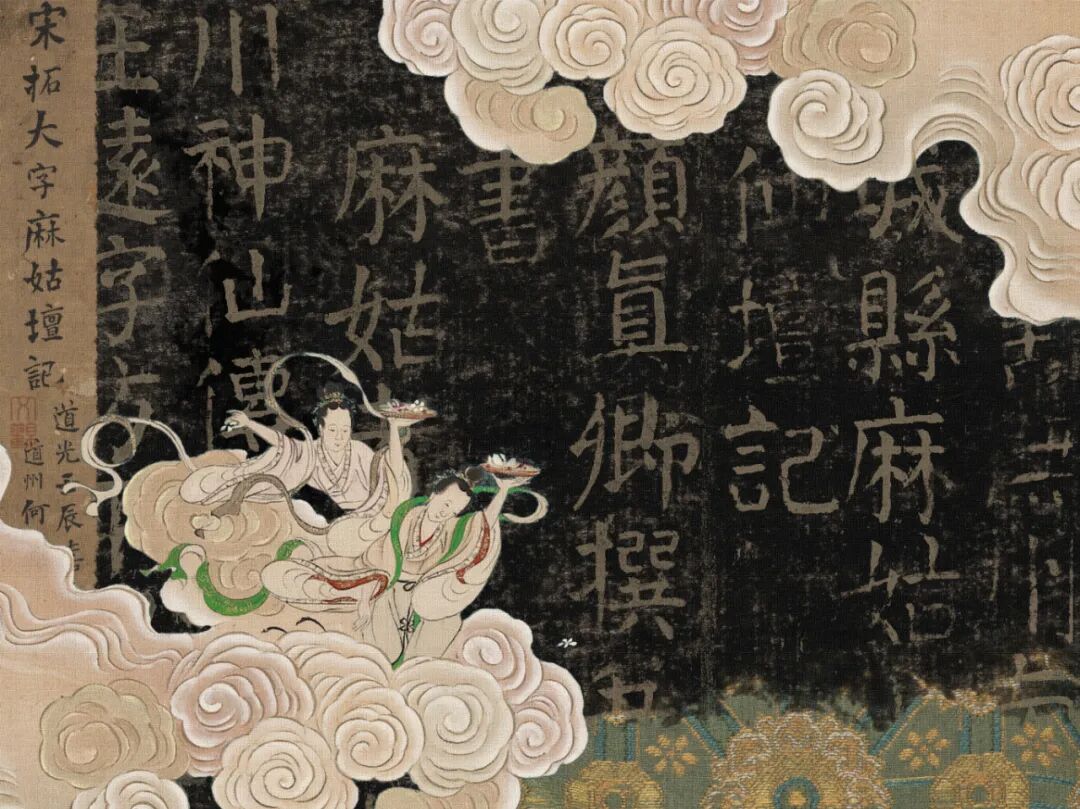 城縣麻姑
仙壇記
顏眞卿撰
書
麻姑
川神仙傳
王遠字方
宋拓大字麻姑壇記
道光壬辰
道州何